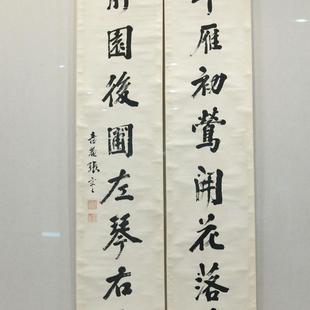 雁初鶯開花落
前園後圃左琴右
嗇菴張謇